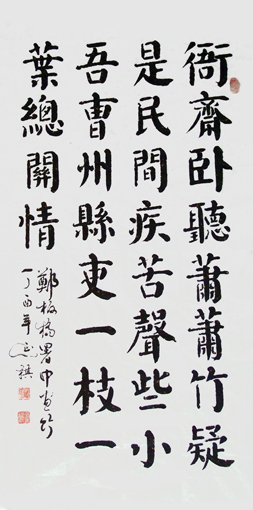 衙齋卧聽蕭蕭竹疑
是民間疾苦聲些小
吾曹州縣吏一枝一
葉總關情
鄭板橋署中畫竹
丁酉年